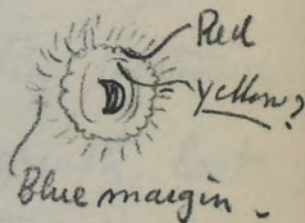 Red
yellow?
Blue margin.